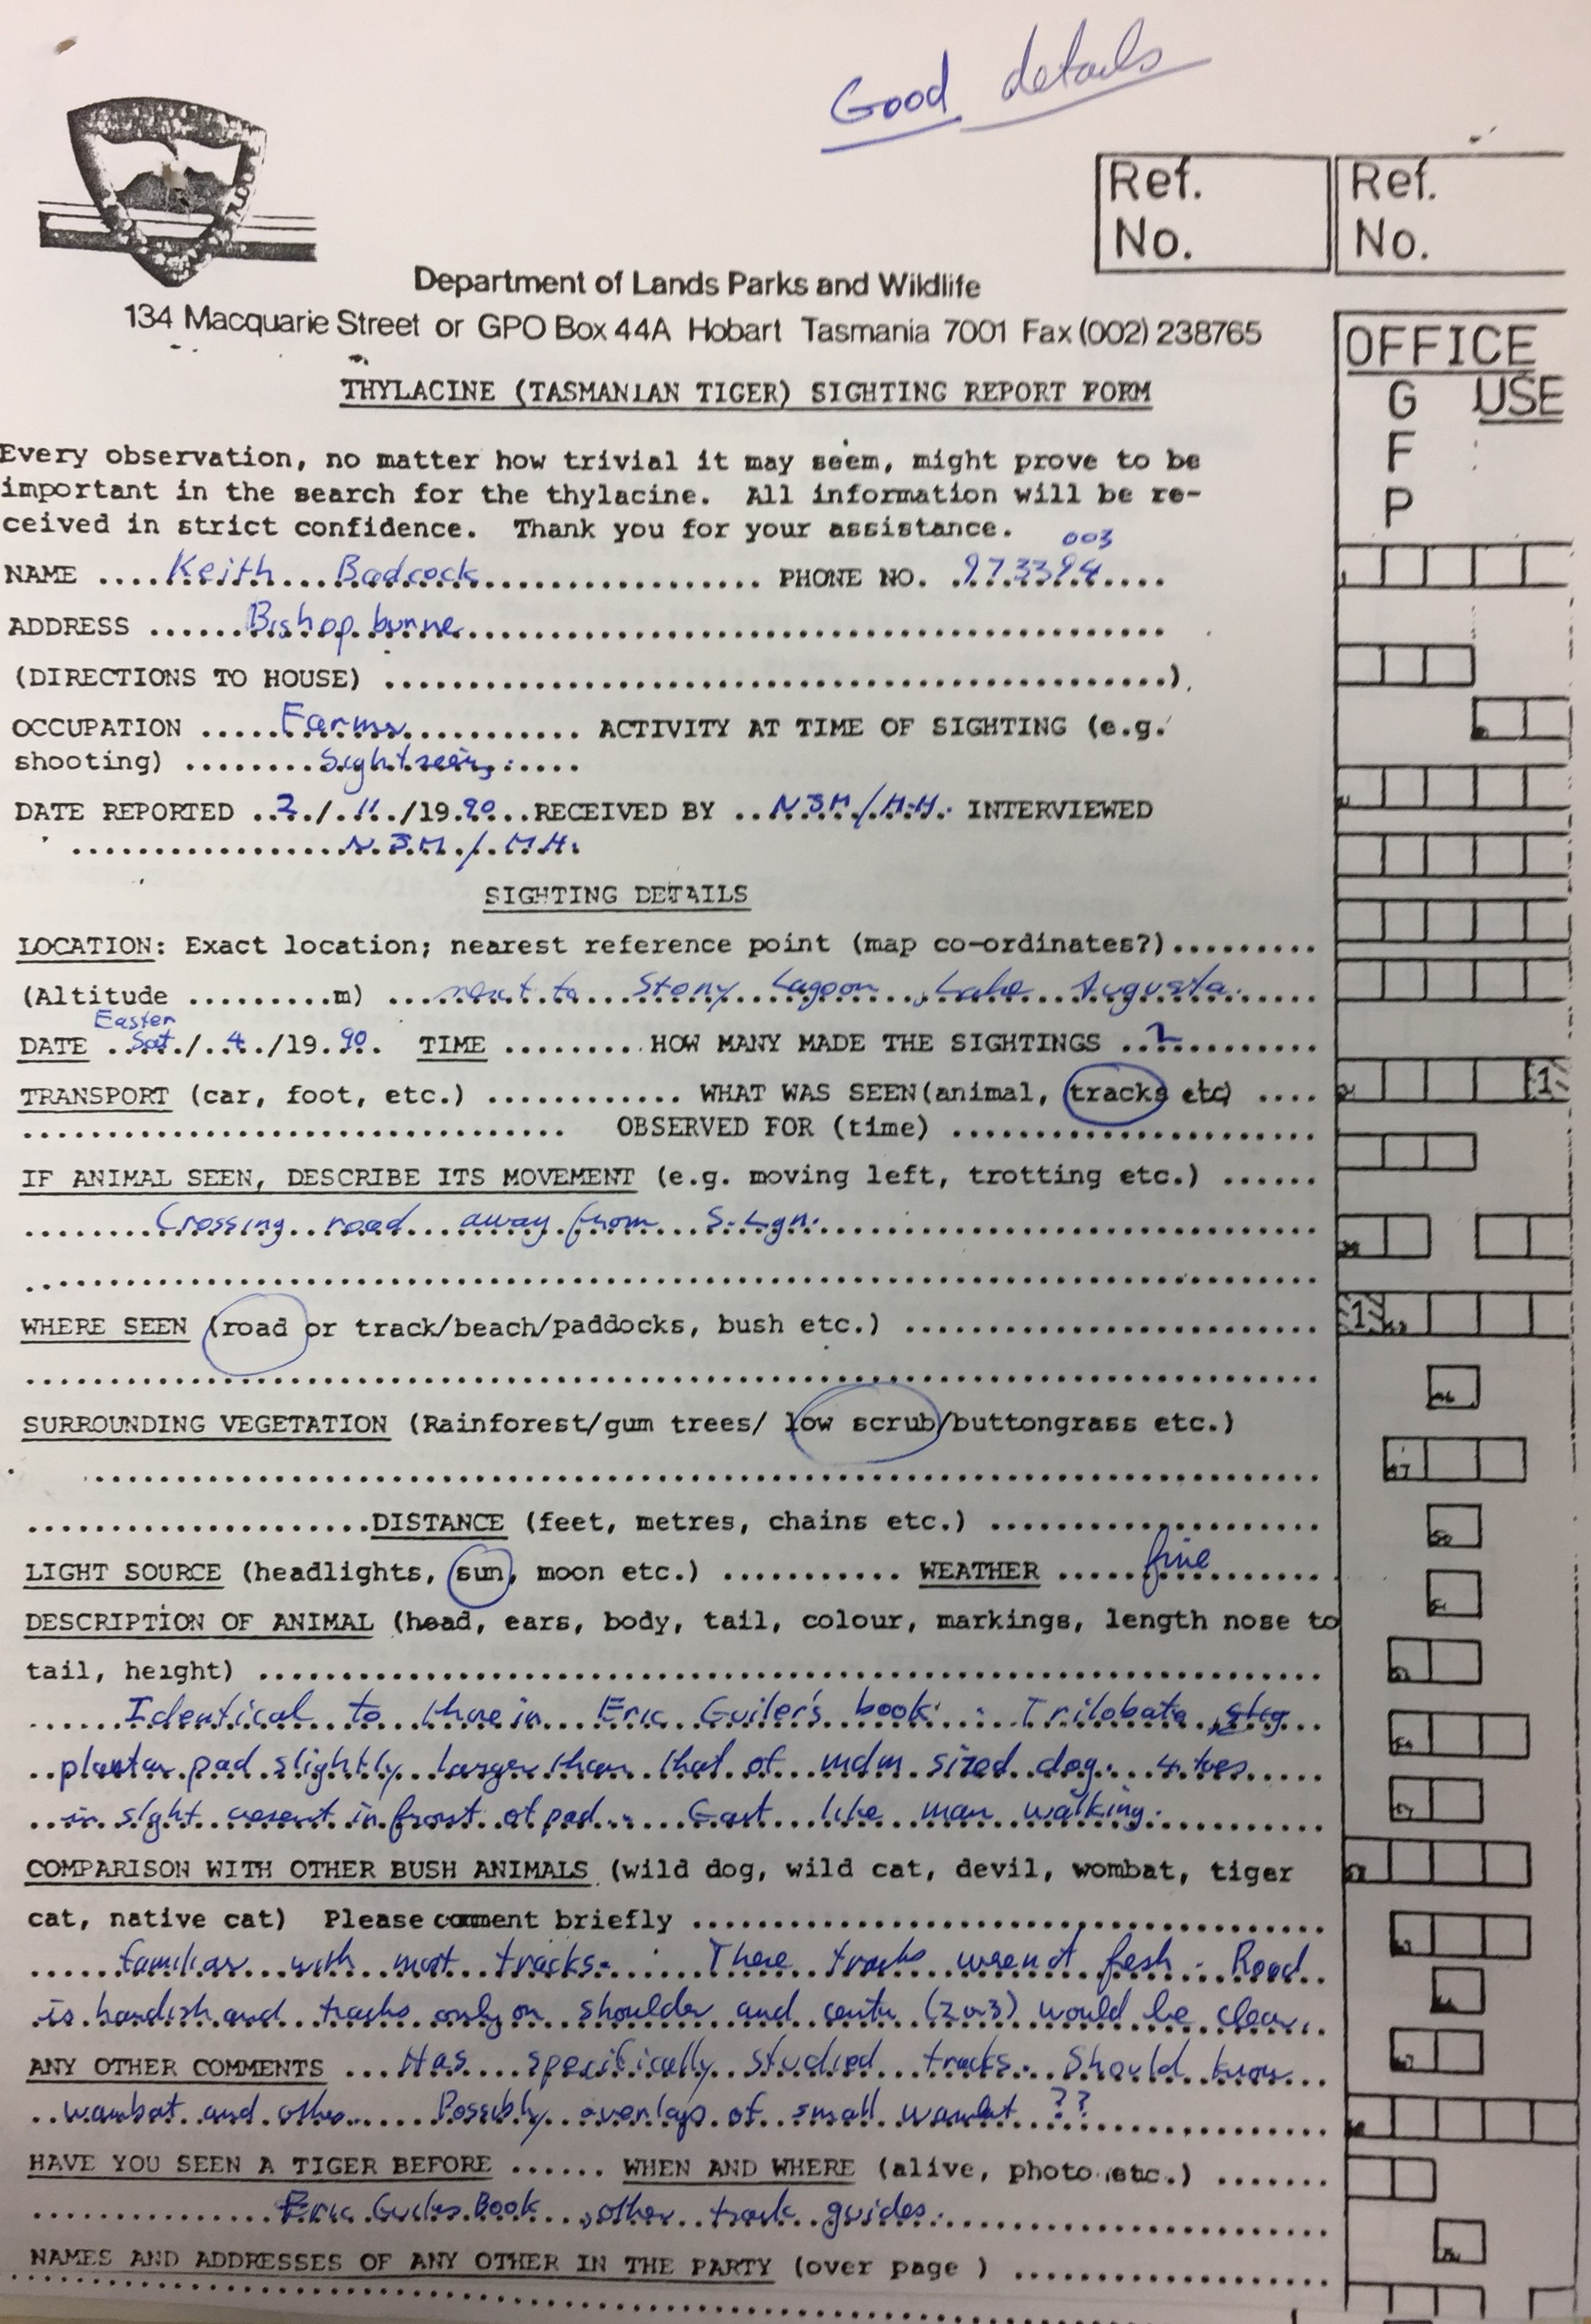 Good details
Ref. Ref.
No. No.
Department of Lands Parks and Wildlife
134 Macquarie Street or GPO Box 44A Hobart Tasmania 7001 Fax (002) 238765
OFFICE
USE
G
F
P
THYLACINE (TASMANIAN TIGER) SIGHTING REPORT FORM
Every observation, no matter how trivial it may seem, might prove to be
important in the search for the thylacine. All information will be re-
ceived in strict confidence. Thank you for your assistance.
003
NAME .... Keith Badcock .... PHONE NO. 973394 ....
ADDRESS ...... Bishopbunne ......
(DIRECTIONS TO HOUSE) ......).
OCCUPATION ..... Farmer ..... ACTIVITY AT TIME OF SIGHTING (e.g.
shooting) ..... Sightseeing .....
DATE REPORTED ..2./.11./19.90...RECEIVED BY ..N.J.M./M.H. INTERVIEWED
.....N.J.M./M.H.
SIGHTING DETAILS
LOCATION: Exact location; nearest reference point (map co-ordinates?).........
(Altitude .........m) ....next to Stony Lagoon, Lake Augusta.
Easter
DATE ..Sat./.4./19.90. TIME ......... HOW MANY MADE THE SIGHTINGS ..2..........
TRANSPORT (car, foot, etc.) ............ WHAT WAS SEEN (animal, tracks etc) ....
1
............ OBSERVED FOR (time) ............
IF ANIMAL SEEN, DESCRIBE ITS MOVEMENT (e.g. moving left, trotting etc.) ......
Crossing road away from S. Lgn.
WHERE SEEN (road or track/beach/paddocks, bush etc.) ............
1
SURROUNDING VEGETATION (Rainforest/gum trees/ low scrub/buttongrass etc.)
............DISTANCE (feet, metres, chains etc.) ............
LIGHT SOURCE (headlights, sun, moon etc.) ........... WEATHER ..... fine
DESCRIPTION OF ANIMAL (head, ears, body, tail, colour, markings, length nose to
tail, height) ............
Identical to those in Eric Guiler's book. Trilobate
plantar pad slightly larger than that of mdm sized dog. 4 toes
in slght cresent in front of pad. Gait like man walking.
COMPARISON WITH OTHER BUSH ANIMALS (wild dog, wild cat, devil, wombat, tiger
cat, native cat) Please comment briefly ............
familiar with most tracks. These tracks weren't fresh. Road
is hardish and tracks only on shoulder and centre (2 or 3) would be clear.
ANY OTHER COMMENTS ...Has specifically studied tracks. Should know
wombat and other. Possibly overlaps of small wombat ??
HAVE YOU SEEN A TIGER BEFORE ...... WHEN AND WHERE (alive, photo etc.) .......
Eric Guilers Book, other track guides.
NAMES AND ADDRESSES OF ANY OTHER IN THE PARTY (over page ) ............